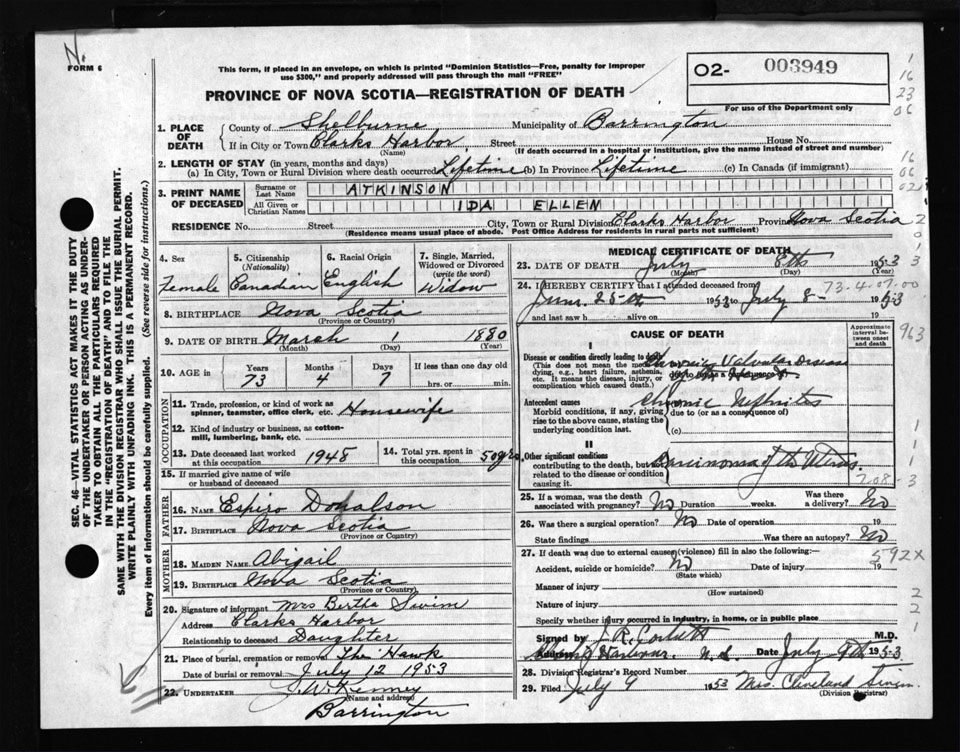 N.
FORM 6
This form, if placed in an envelope, on which is printed "Dominion Statistics—Free, penalty for improper
use $300," and properly addressed will pass through the mail "FREE"
O2- 003949
For use of the Department only
PROVINCE OF NOVA SCOTIA—REGISTRATION OF DEATH
1
16
23
06
1. PLACE OF DEATH { County of Shelburne Municipality of Barrington
If in City or Town Clarks Harbor Street House No.
(Name) (If death occurred in a hospital or institution, give the name instead of street and number)
2. LENGTH OF STAY (in years, months and days)
(a) In City, Town or Rural Division where death occurred Lifetime (b) In Province Lifetime (c) In Canada (if immigrant)
16
06
02
3. PRINT NAME OF DECEASED { Surname or Last Name ATKINSON
All Given or Christian Names IDA ELLEN
RESIDENCE No. Street City, Town or Rural Division Clarks Harbor Province Nova Scotia
(Residence means usual place of abode. Post Office Address for residents in rural parts not sufficient)
SEC. 46—VITAL STATISTICS ACT MAKES IT THE DUTY
OF THE UNDERTAKER OR PERSON ACTING AS UNDER-
TAKER TO OBTAIN ALL THE PARTICULARS REQUIRED
IN THE "REGISTRATION OF DEATH" AND TO FILE THE
SAME WITH THE DIVISION REGISTRAR WHO SHALL ISSUE THE BURIAL PERMIT.
WRITE PLAINLY WITH UNFADING INK. THIS IS A PERMANENT RECORD.
Every item of information should be carefully supplied. (See reverse side for instructions.)
4. Sex Female
5. Citizenship (Nationality) Canadian
6. Racial Origin English
7. Single, Married, Widowed or Divorced (write the word) Widow
8. BIRTHPLACE Nova Scotia
(Province or Country)
9. DATE OF BIRTH March 1 1880
(Month) (Day) (Year)
10. AGE Years 73 Months 4 Days 7 If less than one day old
hrs. or min.
OCCUPATION
11. Trade, profession, or kind of work as
spinner, teamster, office clerk, etc. Housewife
12. Kind of industry or business, as cotton-
mill, lumbering, bank, etc.
13. Date deceased last worked at this occupation 1948
14. Total yrs. spent in this occupation 50 yrs.
15. If married give name of wife
or husband of deceased
FATHER
16. Name Espiro Donalson
17. Birthplace Nova Scotia
(Province or Country)
MOTHER
18. Maiden Name Abigail
19. Birthplace Nova Scotia
(Province or Country)
20. Signature of informant Mrs Bertha Swim
Address Clarks Harbor
Relationship to deceased Daughter
21. Place of burial, cremation or removal The Hawk
Date of burial or removal July 12 1953
22. UNDERTAKER J. W. Kenney
(Name and address)
Barrington
MEDICAL CERTIFICATE OF DEATH
23. DATE OF DEATH July 8th 1953
(Month) (Day) (Year)
73-4-07-00
24. I HEREBY CERTIFY that I attended deceased from
June 25th 1953 to July 8- 1953
and last saw h alive on 19
CAUSE OF DEATH
Approximate interval between onset and death
963
I
Disease or condition directly leading to death
(This does not mean the mode of dying, e.g., heart failure, asthenia, etc. It means the disease, injury, or complication which caused death.)
Valvular Disease
Antecedent causes
Morbid conditions, if any, giving rise to the above cause, stating the underlying condition last.
Chronic Nephritis
due to (or as a consequence of)
(c)
II
Other significant conditions
contributing to the death, but not related to the disease or condition causing it.
Carcinoma of the Uterus.
25. If a woman, was the death associated with pregnancy? No Duration weeks. Was there a delivery? No
26. Was there a surgical operation? No Date of operation 19
State findings Was there an autopsy? No
27. If death was due to external causes (violence) fill in also the following:
592X
Accident, suicide or homicide? No Date of injury 19
(State which)
Manner of injury
(How sustained)
Nature of injury
Specify whether injury occurred in industry, in home, or in public place
Signed by M.D.
Address Harbour. N.S. Date July 9th 1953
28. Division Registrar's Record Number
29. Filed July 9 1953 Mrs. Cleveland
(Division Registrar)